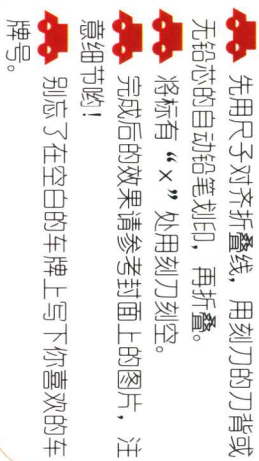 先用尺子对齐折叠线，用刻刀的刀背或
无铅芯的自动铅笔划印，再折叠。
将标有“×”处用刻刀刻空。
完成后的效果请参考封面上的图片，注
意细节哟！
别忘了在空白的车牌上写下你喜欢的车
牌号。